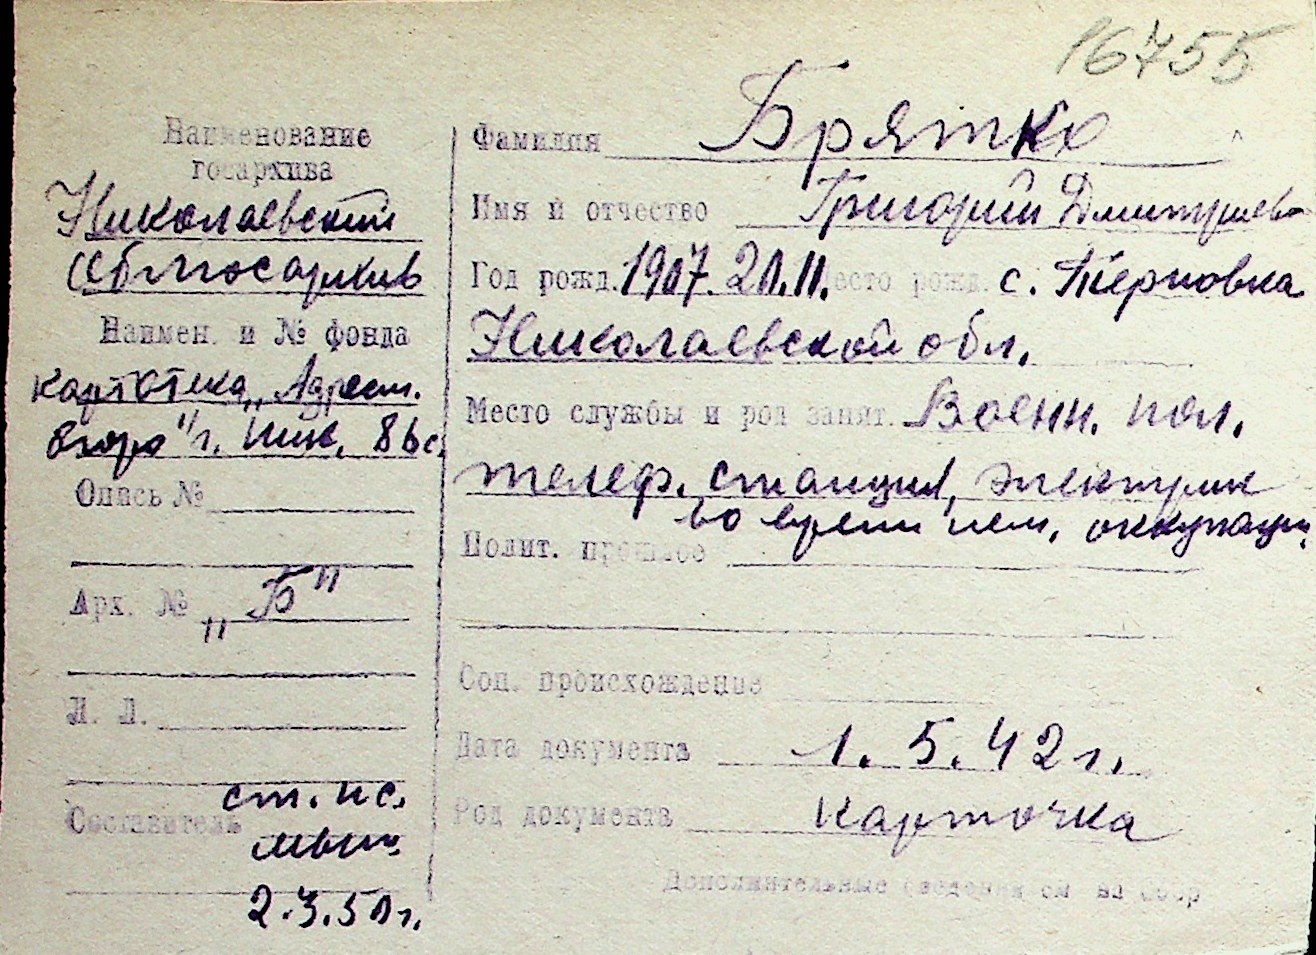 16755
Наименование
госархива
Николаевский
облгосархив
Наимен. и № фонда
картотека „Адресн.
бюро" г. Ник.
Опись №
Арх. № „Б"
Л. Л.
Составитель ст. ис.
2.3.50 г.
Фамилия Брятко
Имя и отчество Григорий Дмитриев
Год рожд. 1907. 20.11. Место рожд. с. Терновка
Николаевской обл.
Место службы и род занят. Военн. пол.
телеф. станция, электрик
во время нем. оккупации
Полит. прошлое
Соц. происхождение
Дата документа 1.5.42 г.
Род документа карточка
Дополнительные сведения см на обор